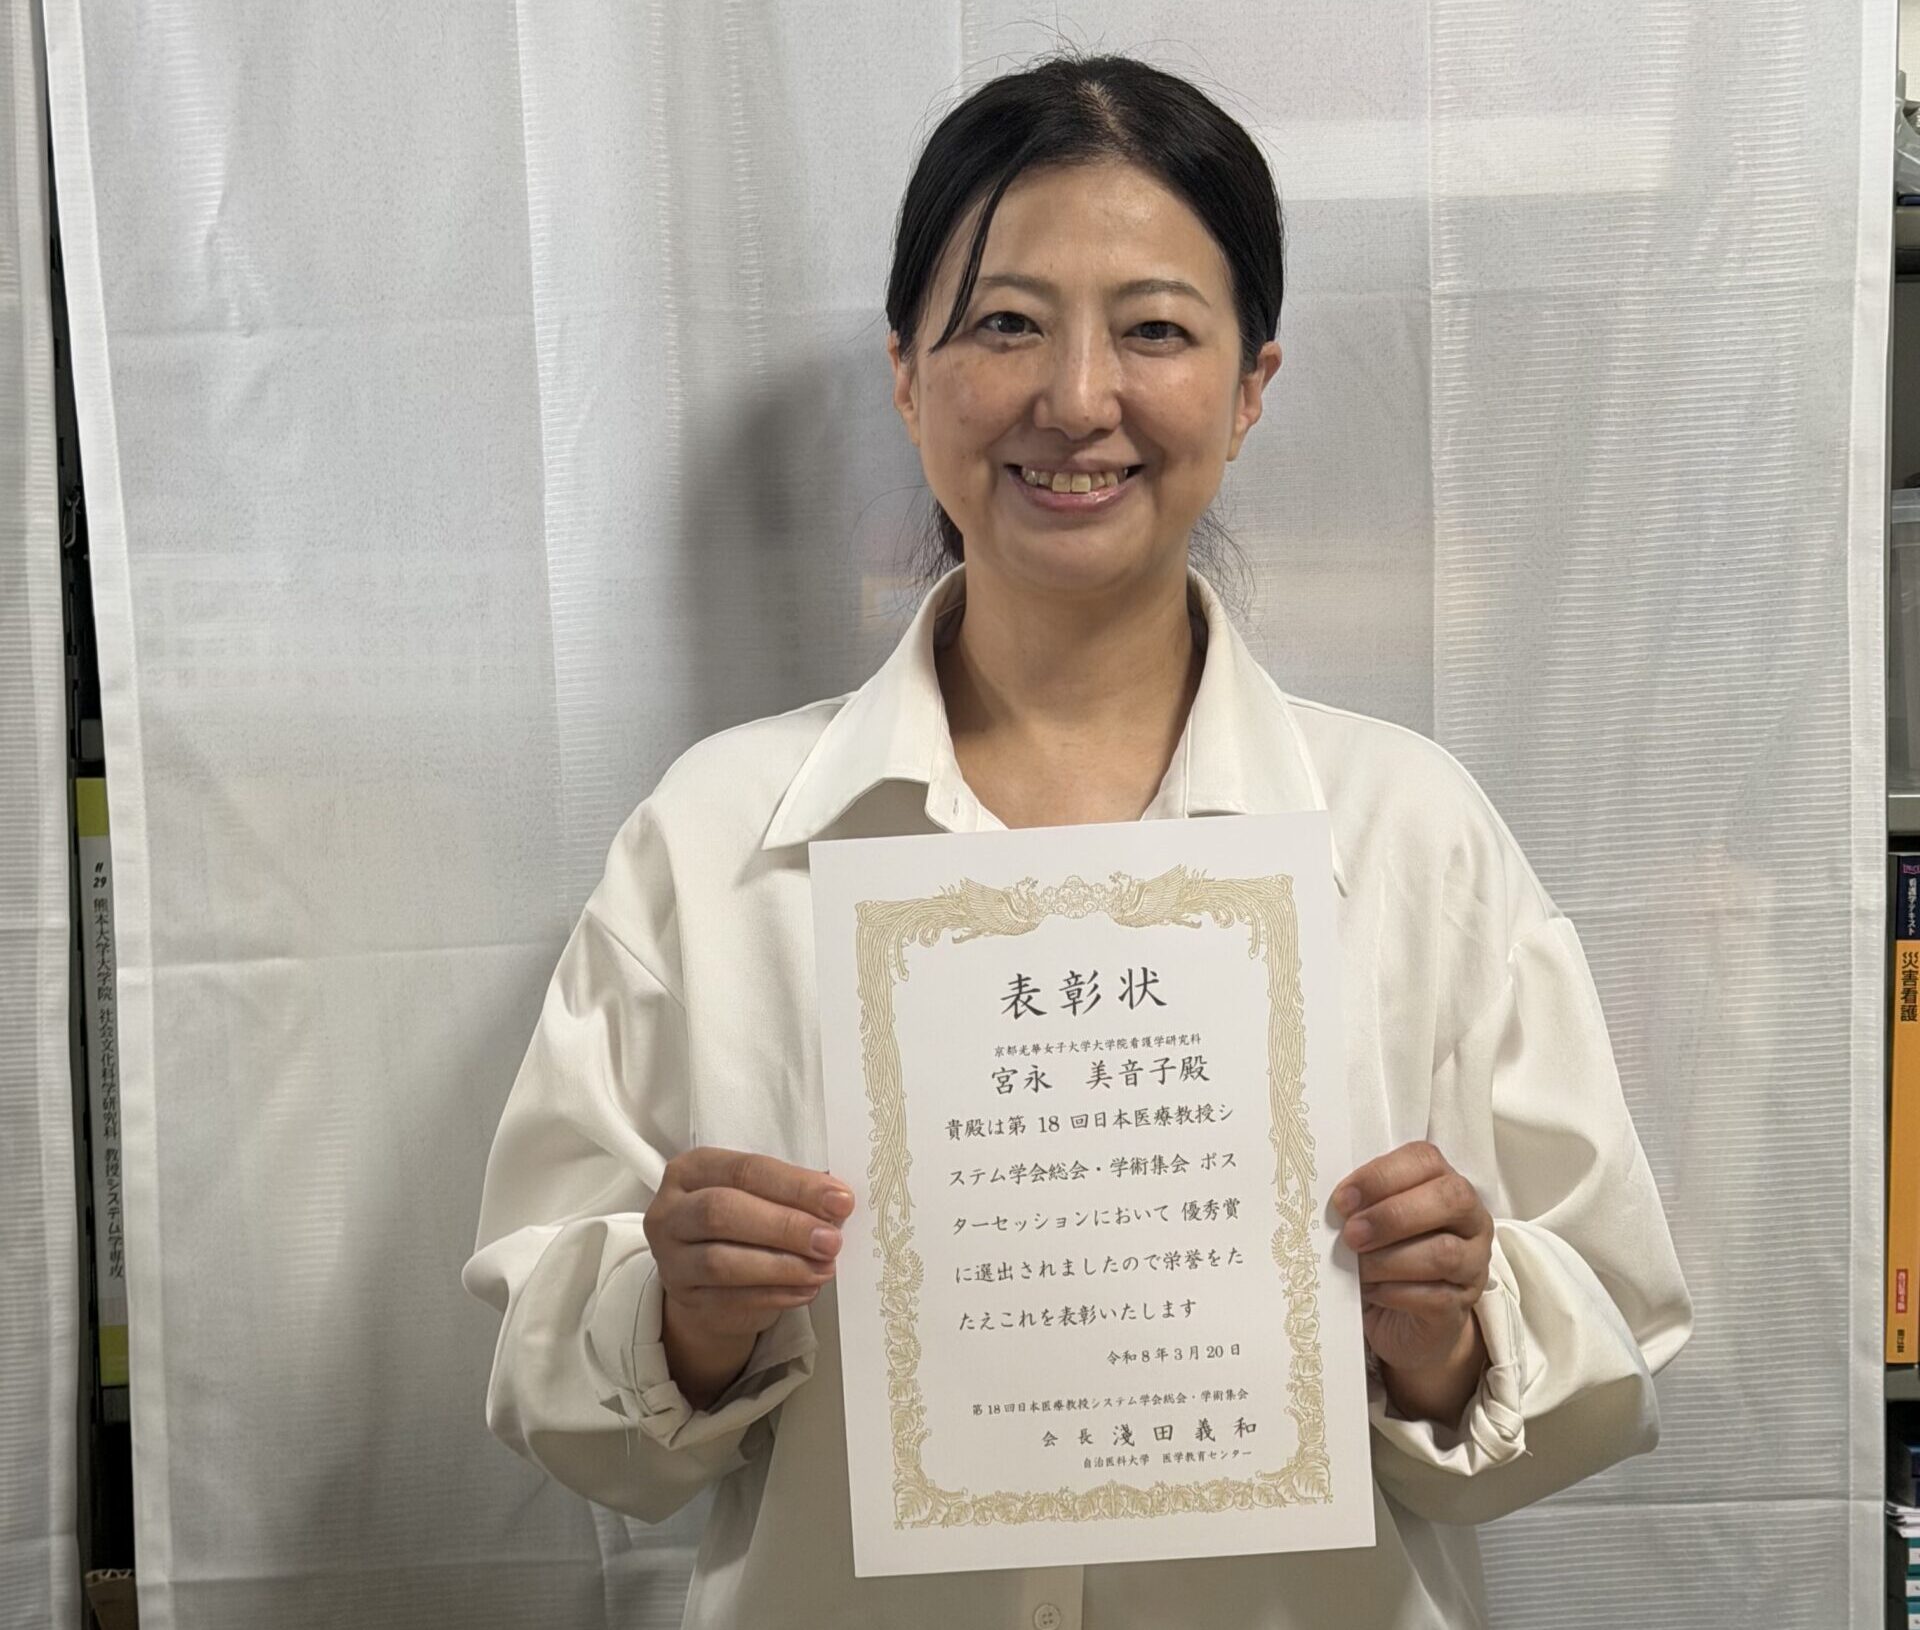 表彰状
京都光華女子大学大学院看護学研究科
宮永 美音子殿
貴殿は第 18 回日本医療教授シ
ステム学会総会・学術集会 ポス
ターセッションにおいて 優秀賞
に選出されましたので栄誉をた
たえこれを表彰いたします
令和8年3月20日
第18回日本医療教授システム学会総会・学術集会
会 長 淺 田 義 和
自治医科大学 医学教育センター
29
熊本大学大学院 社会文化科学研究科 教授システム学専攻
看護学テキスト
災害看護